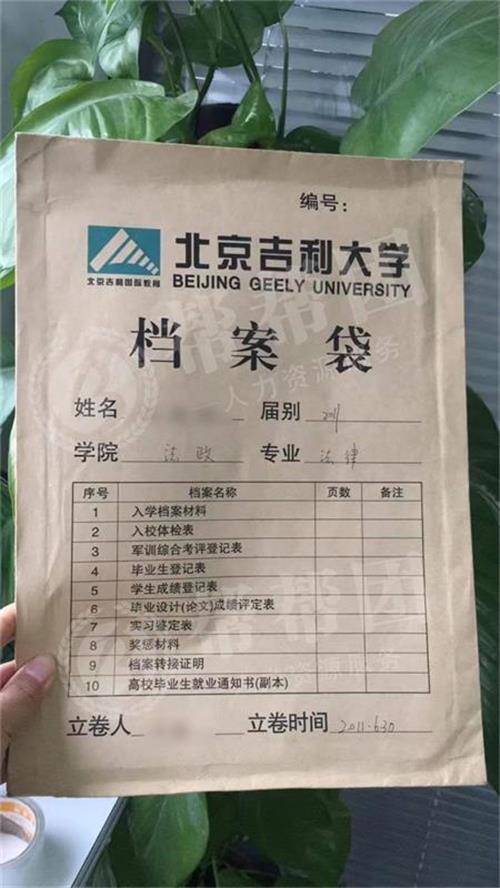 编号：
北京吉利大学
BEIJING GEELY UNIVERSITY
北京吉利国际教育
档案袋
姓名 届别
学院 法政 专业 法律
序号 档案名称 页数 备注
1 入学档案材料
2 入校体检表
3 军训综合考评登记表
4 毕业生登记表
5 学生成绩登记表
6 毕业设计(论文)成绩评定表
7 实习鉴定表
8 奖惩材料
9 档案转接证明
10 高校毕业生就业通知书(副本)
立卷人 立卷时间 2011.6.30
帮帮团
人力资源服务